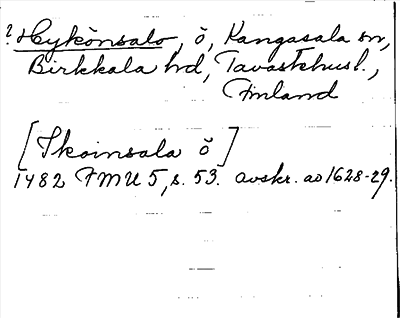 ? Hykönsalo, ö, Kangasala sn,
Birkkala hd, Tavastehusl.,
Finland
[Skoinsala ö]
1482 FMU 5, s. 53. avskr. ao 1628-29.